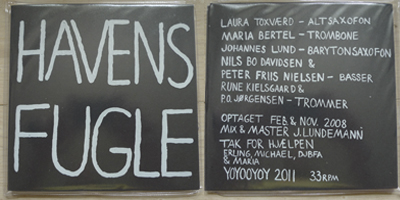 HAVENS
FUGLE
LAURA TOXVÆRD - ALTSAXOFON
MARIA BERTEL - TROMBONE
JOHANNES LUND - BARYTONSAXOFON
NILS BO DAVIDSEN &
PETER FRIIS NIELSEN - BASSER
RUNE KIELSGAARD &
P.O. JØRGENSEN - TROMMER
OPTAGET FEB & NOV. 2008
MIX & MASTER J. LUNDEMANN
TAK FOR HJÆLPEN
ERLING, MICHAEL, DJBFA
& MARIA
YOYOOYOY 2011 33RPM